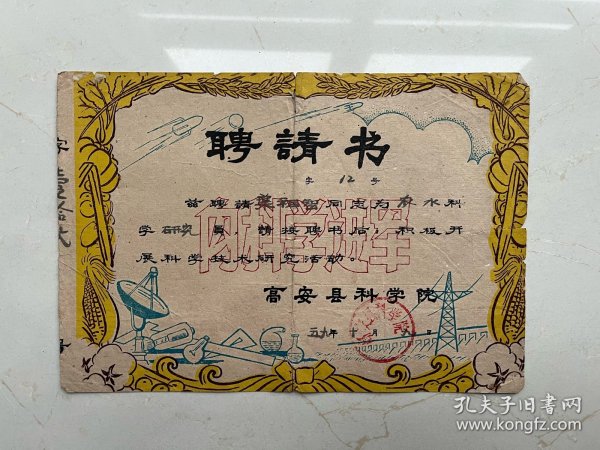 聘請书
字 12 号
兹聘請 同志为 水利科
学研究員,請接聘书后,积极开
展科学技术研究活动。
向科学进军
高安县科学院
五九年十月 日
字壹拾贰
孔夫子旧书网
www.kongfz.com